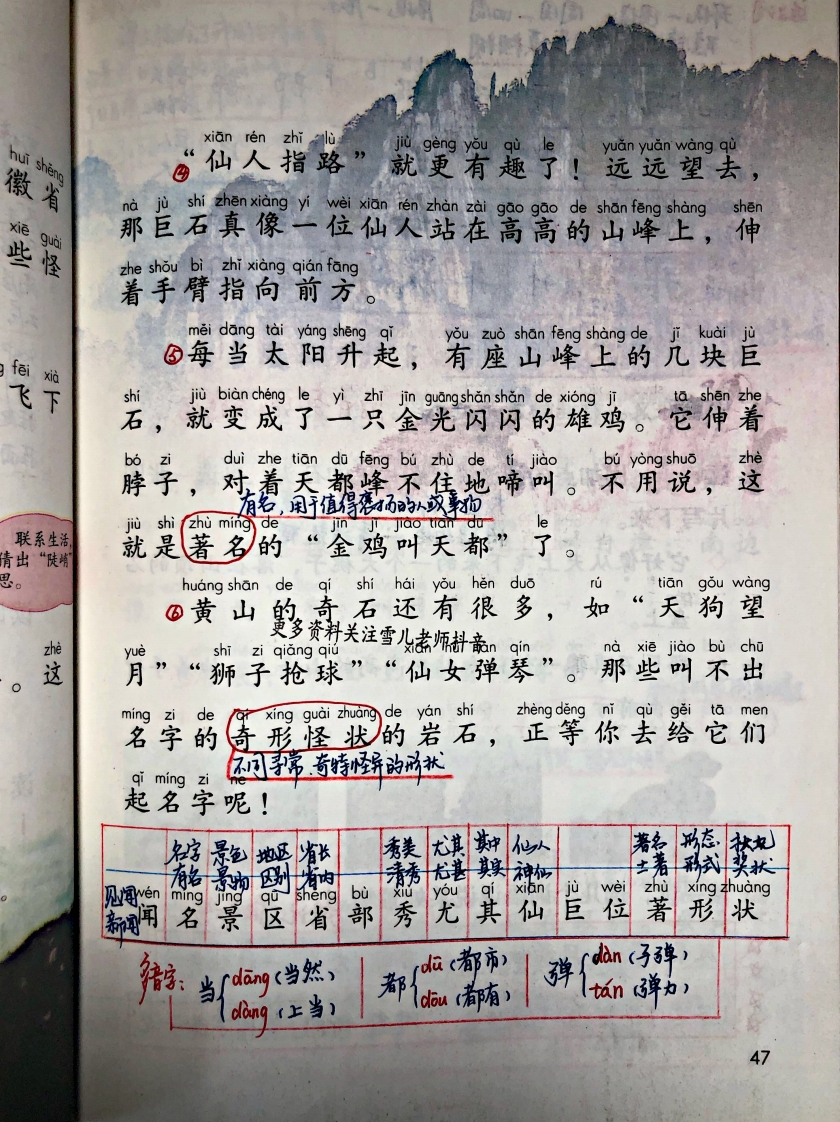 xiān rén zhǐ lù jiù gèng yǒu qù le yuǎn yuǎn wàng qù
④“仙人指路”就更有趣了！远远望去，
nà jù shí zhēn xiàng yí wèi xiān rén zhàn zài gāo gāo de shān fēng shàng shēn
那巨石真像一位仙人站在高高的山峰上，伸
zhe shǒu bì zhǐ xiàng qián fāng
着手臂指向前方。
měi dāng tài yáng shēng qǐ yǒu zuò shān fēng shàng de jǐ kuài jù
⑤每当太阳升起，有座山峰上的几块巨
shí jiù biàn chéng le yì zhī jīn guāng shǎn shǎn de xióng jī tā shēn zhe
石，就变成了一只金光闪闪的雄鸡。它伸着
bó zi duì zhe tiān dū fēng bú zhù de tí jiào bú yòng shuō zhè
脖子，对着天都峰不住地啼叫。不用说，这
有名，用于值得褒扬的人或事物
jiù shì zhù míng de jīn jī jiào tiān dū le
就是著名的“金鸡叫天都”了。
huáng shān de qí shí hái yǒu hěn duō rú tiān gǒu wàng
⑥黄山的奇石还有很多，如“天狗望
更多资料关注雪儿老师抖音
yuè shī zi qiǎng qiú xiān nǚ tán qín nà xiē jiào bù chū
月”“狮子抢球”“仙女弹琴”。那些叫不出
míng zi de qí xíng guài zhuàng de yán shí zhèng děng nǐ qù gěi tā men
名字的奇形怪状的岩石，正等你去给它们
不同寻常、奇特怪异的形状
qǐ míng zi ne
起名字呢！
名字 景色 地区 省长 秀美 尤其 其中 仙人 著名 形态 状况
有名 景物 区别 省内 清秀 尤甚 其实 神仙 土著 形式 奖状
见闻
新闻
wén míng jǐng qū shěng bù xiù yóu qí xiān jù wèi zhù xíng zhuàng
闻 名 景 区 省 部 秀 尤 其 仙 巨 位 著 形 状
多音字：
当 dāng（当然） dàng（上当）
都 dū（都市） dōu（都有）
弹 dàn（子弹） tán（弹力）
47
huī shěng
徽省
xiē guài
些怪
fēi xià
飞下
联系生活，
猜出“陡峭”
思。
zhè
。这